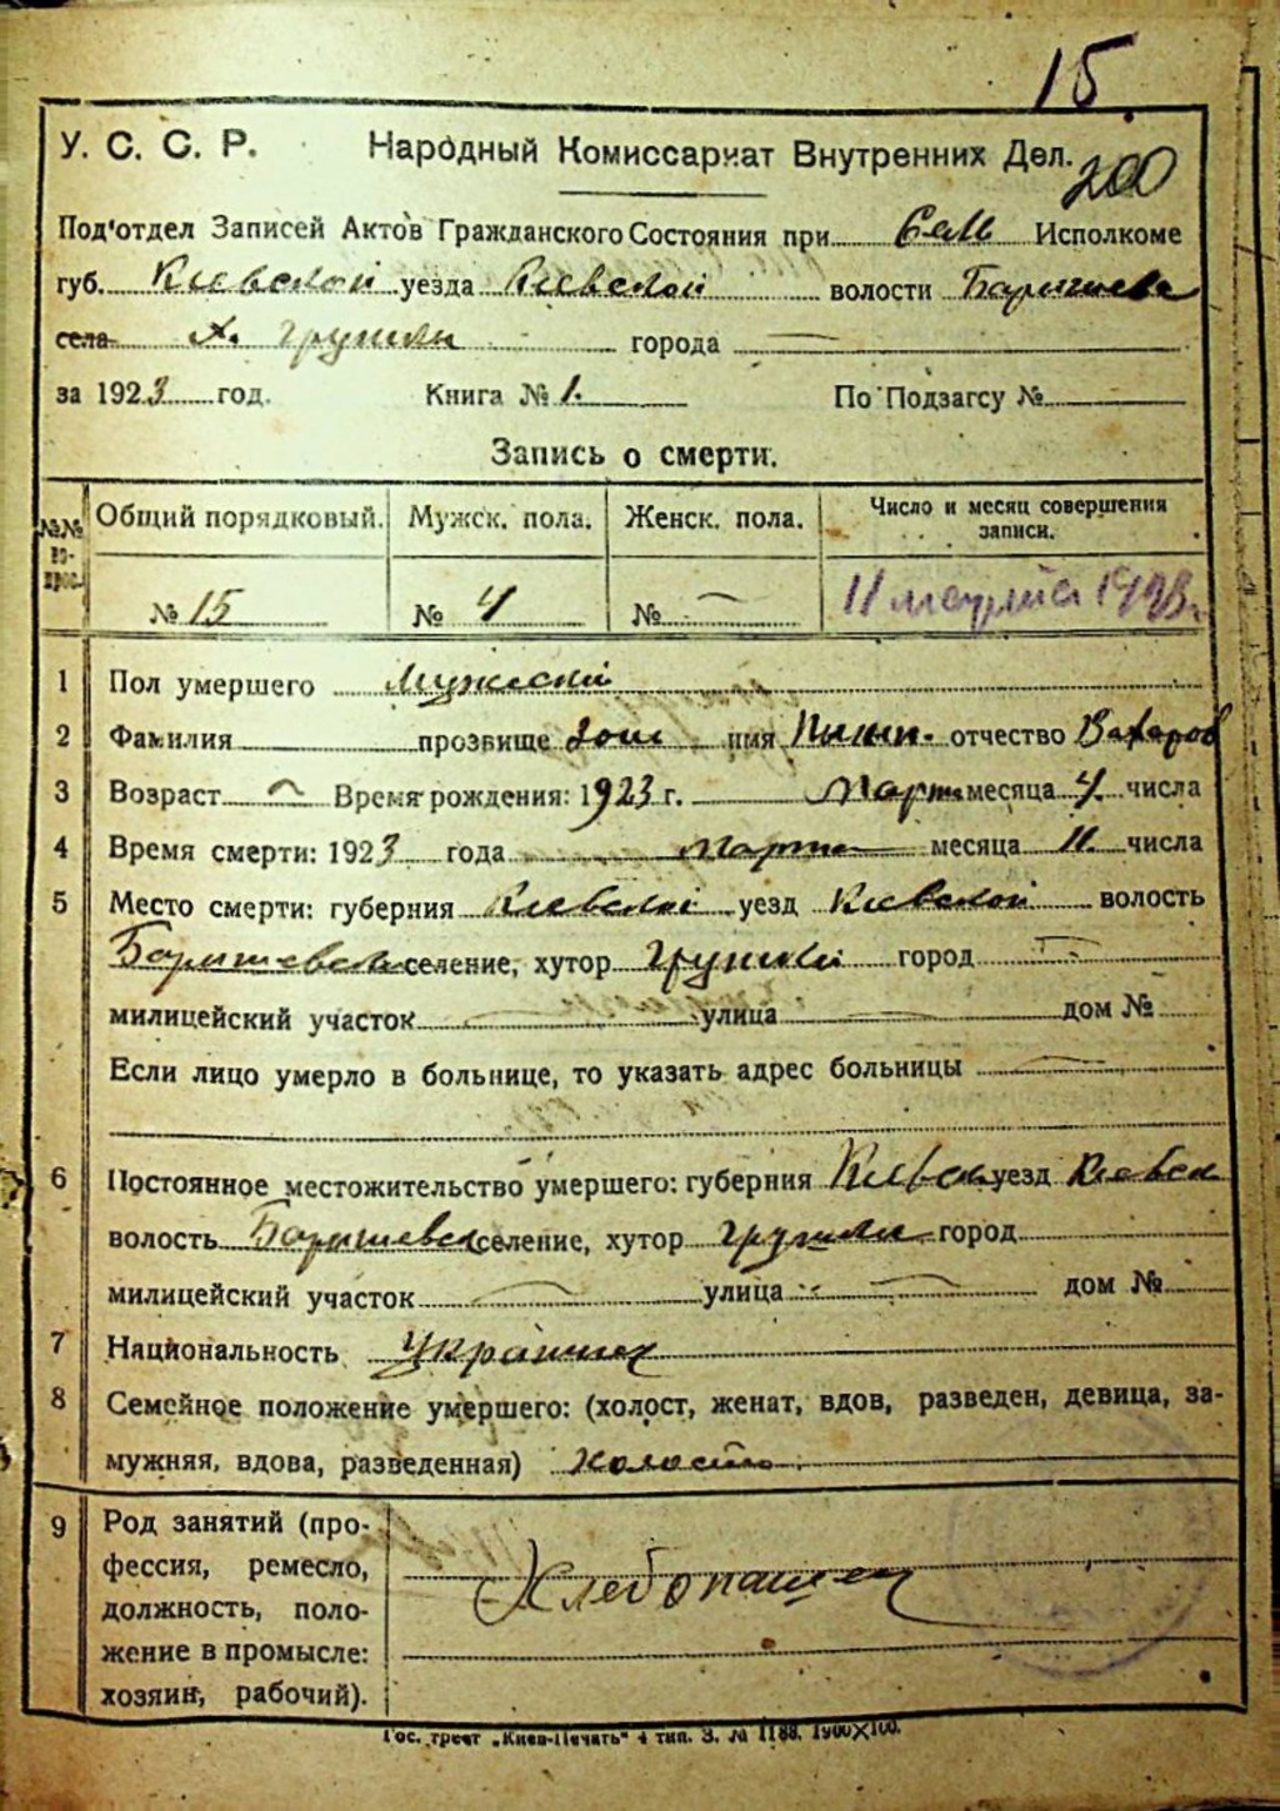 15
У. С. С. Р. Народный Комиссариат Внутренних Дел.
200
Под'отдел Записей Актов Гражданского Состояния при Исполкоме
губ. Киевской уезда Киевской волости Барышевс
села х. Грушки города —
за 1923 год. Книга № 1. По Подзагсу №
Запись о смерти.
№№ вопрос. Общий порядковый. Мужск. пола. Женск. пола. Число и месяц совершения записи.
№ 15 № 4 № — 11 марта 1923 г.
1 Пол умершего Мужеский
2 Фамилия прозвище имя отчество Захаров
3 Возраст — Время рождения: 1923 г. Марта месяца 4. числа
4 Время смерти: 1923 года марта месяца 11. числа
5 Место смерти: губерния Киевской уезд Киевской волость
Барышевск селение, хутор Грушки город —
милицейский участок — улица — дом №
Если лицо умерло в больнице, то указать адрес больницы —
6 Постоянное местожительство умершего: губерния Киевск уезд Киевск
волость Барышевск селение, хутор Грушки город
милицейский участок — улица — дом №
7 Национальность Украинец
8 Семейное положение умершего: (холост, женат, вдов, разведен, девица, за-
мужняя, вдова, разведенная) холост
9 Род занятий (про-
фессия, ремесло,
должность, поло-
жение в промысле:
хозяин, рабочий).
Хлебопашец
Гос. трест „Киев-Печать" 4 тип. З. № 1188. 1900×100.